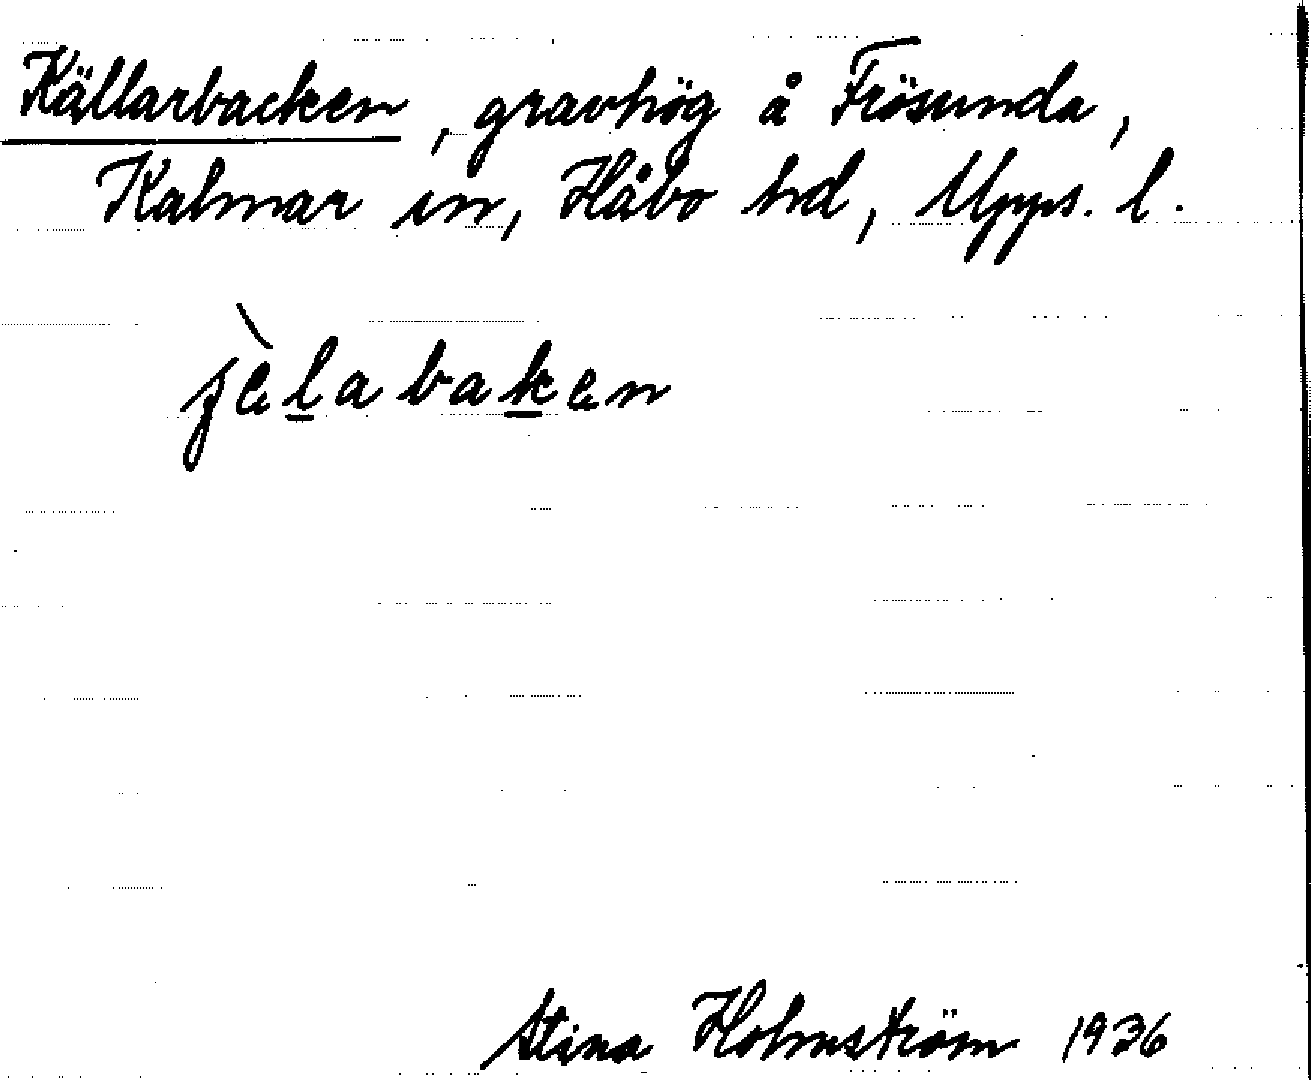 Källarbacken, gravhög å Frösunda,
Kalmar sn, Håbo hd, Upps. l.
ɟèḻabaḵen
Stina Holmström 1936